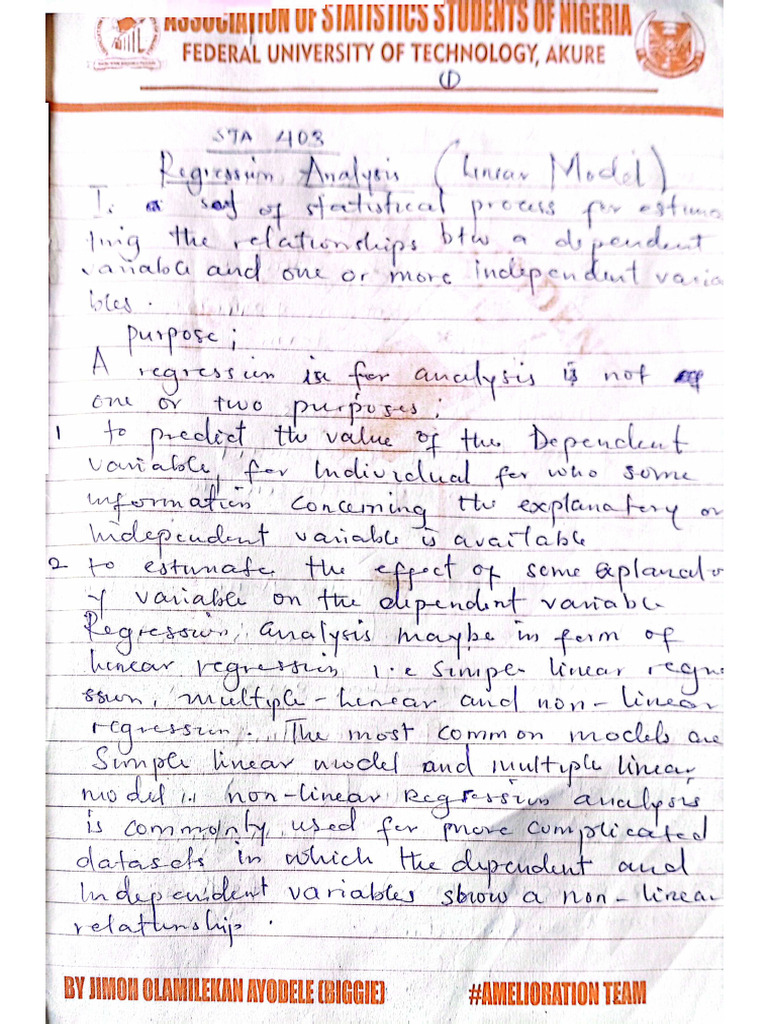 ASSOCIATION OF STATISTICS STUDENTS OF NIGERIA
FEDERAL UNIVERSITY OF TECHNOLOGY, AKURE
①
STA 403
Regression Analysis (Linear Model)
Is a set of statistical process for estima
ting the relationships btw a dependent
variable and one or more independent varia
bles.
purpose;
A regression is for analysis is not
one or two purposes;
1 to predict the value of the Dependent
variable, for individual for who some
information concerning the explanatory or
Independent variable is available
2 to estimate the effect of some explanato
ry variable on the dependent variable
Regression, analysis maybe in form of
linear regression i.e simple linear regre
ssion, multiple-linear and non-linear
regression. The most common models are
Simple linear model and multiple linear
model. non-linear Regression analysis
is commonly used for more complicated
datasets in which the dependent and
Independent variables show a non-linear
relationship.
BY JIMOH OLAMILEKAN AYODELE (BIGGIE) #AMELIORATION TEAM